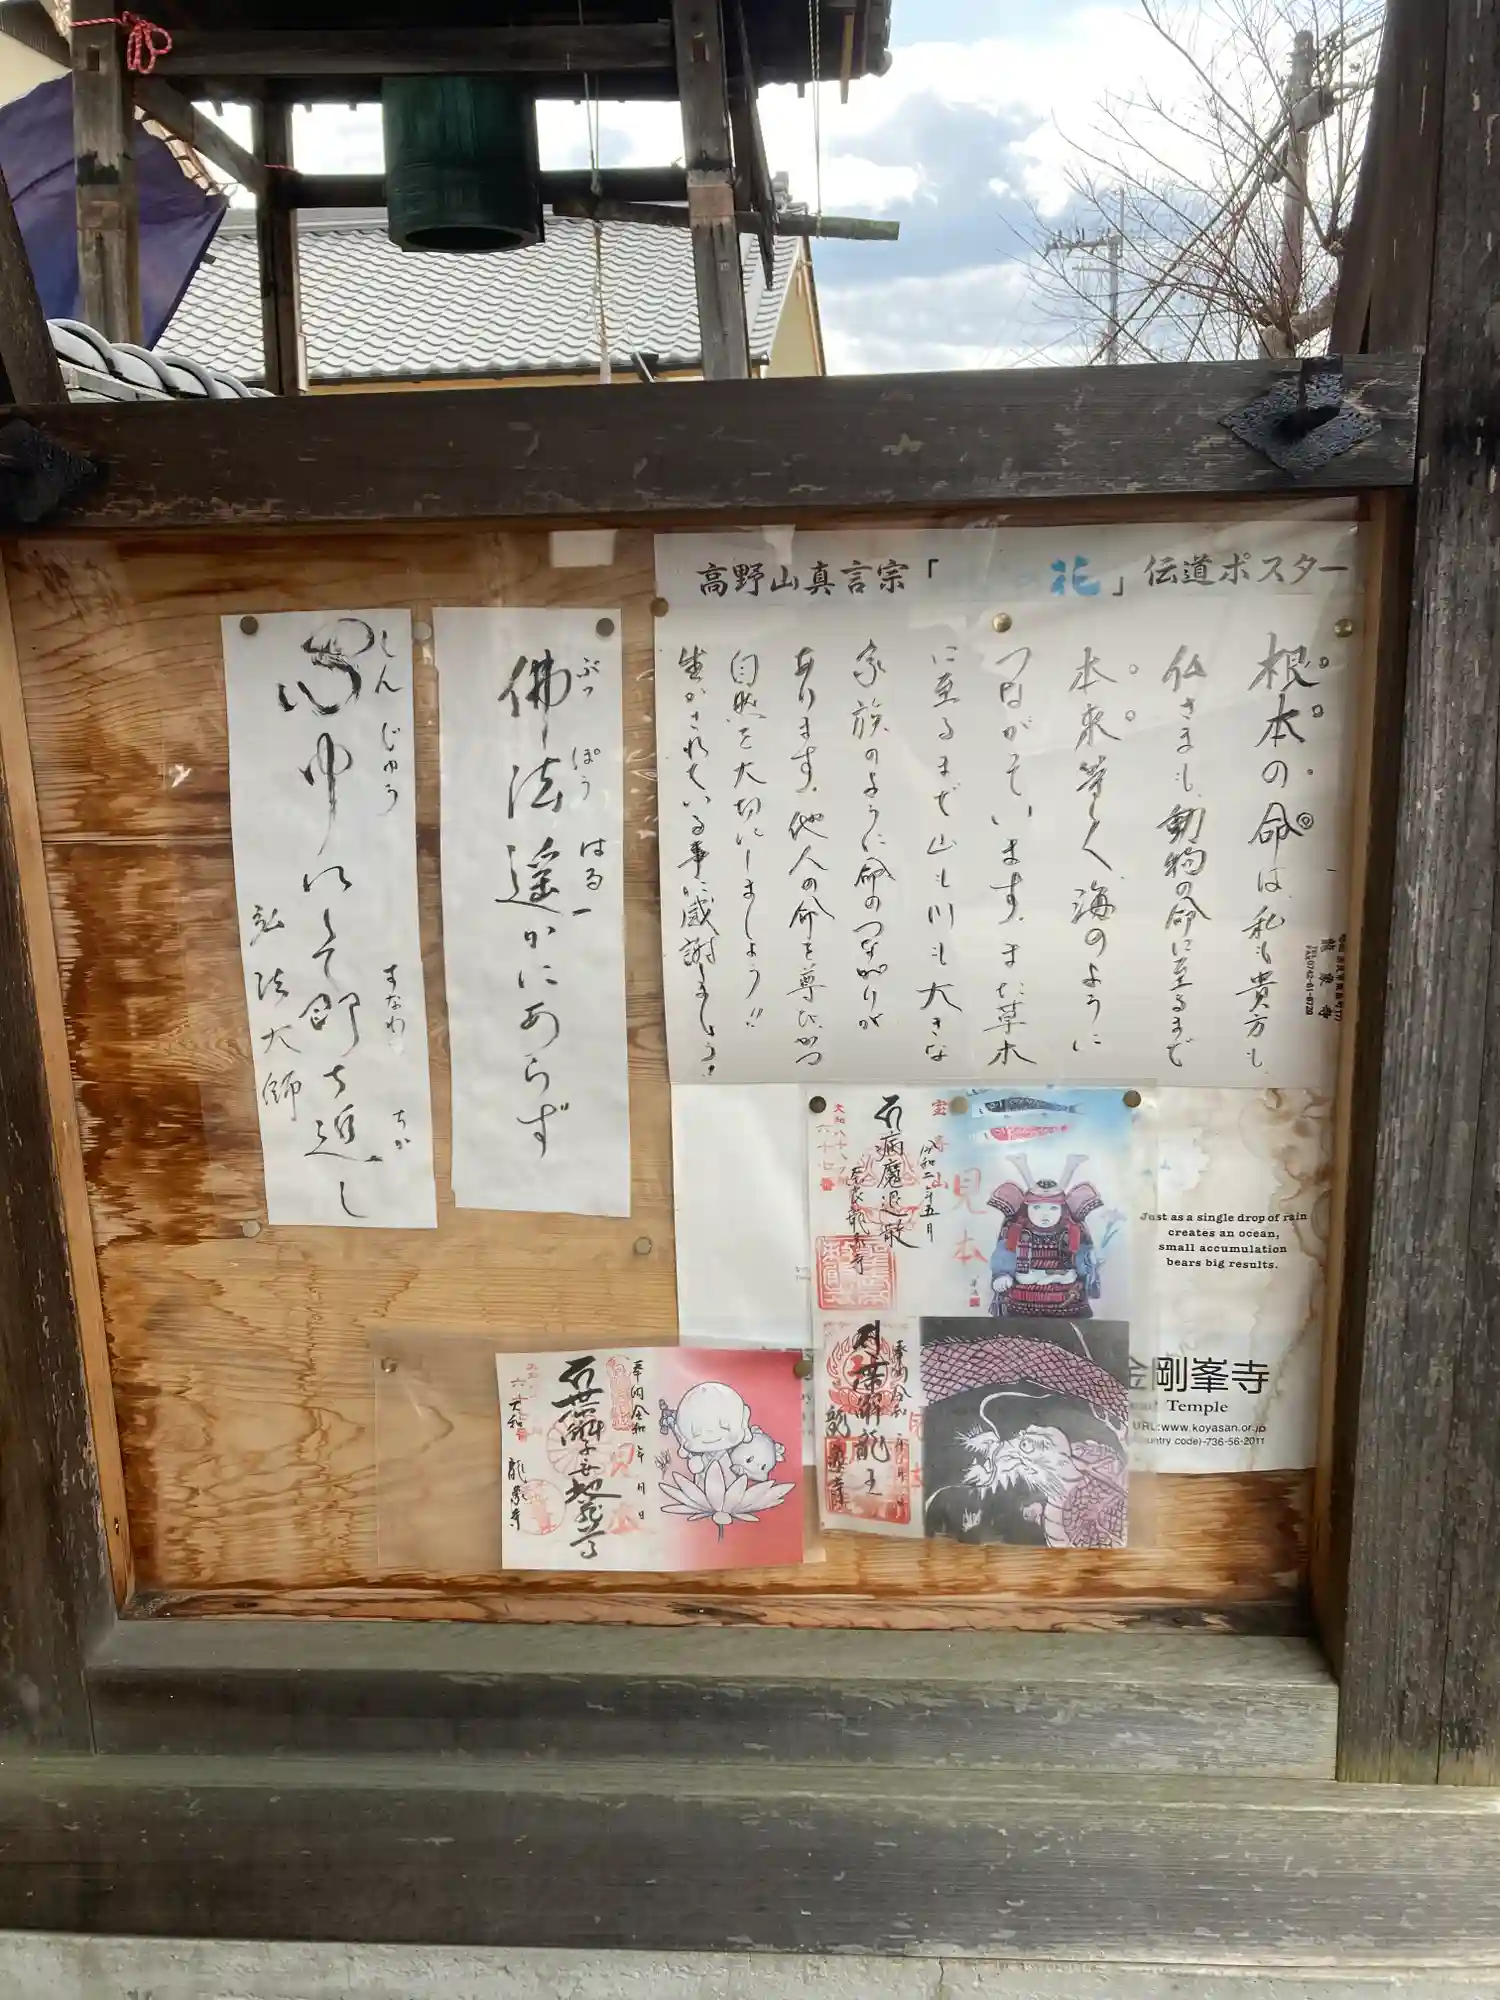 高野山真言宗「
花」伝道ポスター
根本の命は、私も貴方も
仏さまも、動物の命に至るまで
本来等しく、海のように
つながっています。また草木
に至るまで山も川も大きな
家族のように命のつながりが
あります。他人の命を尊び、かつ
自然を大切にしましょう!!
生かされている事に感謝しましょう!
佛法遥かにあらず
ぶっ
ぽう
はる
心中にして即ち近し
しん
じゅう
すなわ
ちか
弘法大師
龍象寺
宝寿山
疫病魔退散
令和二年五月
見本
奉納令和 年 月 日
龍象寺
Just as a single drop of rain
creates an ocean,
small accumulation
bears big results.
金剛峯寺
Temple
URL:www.koyasan.or.jp
country code)-736-56-2011